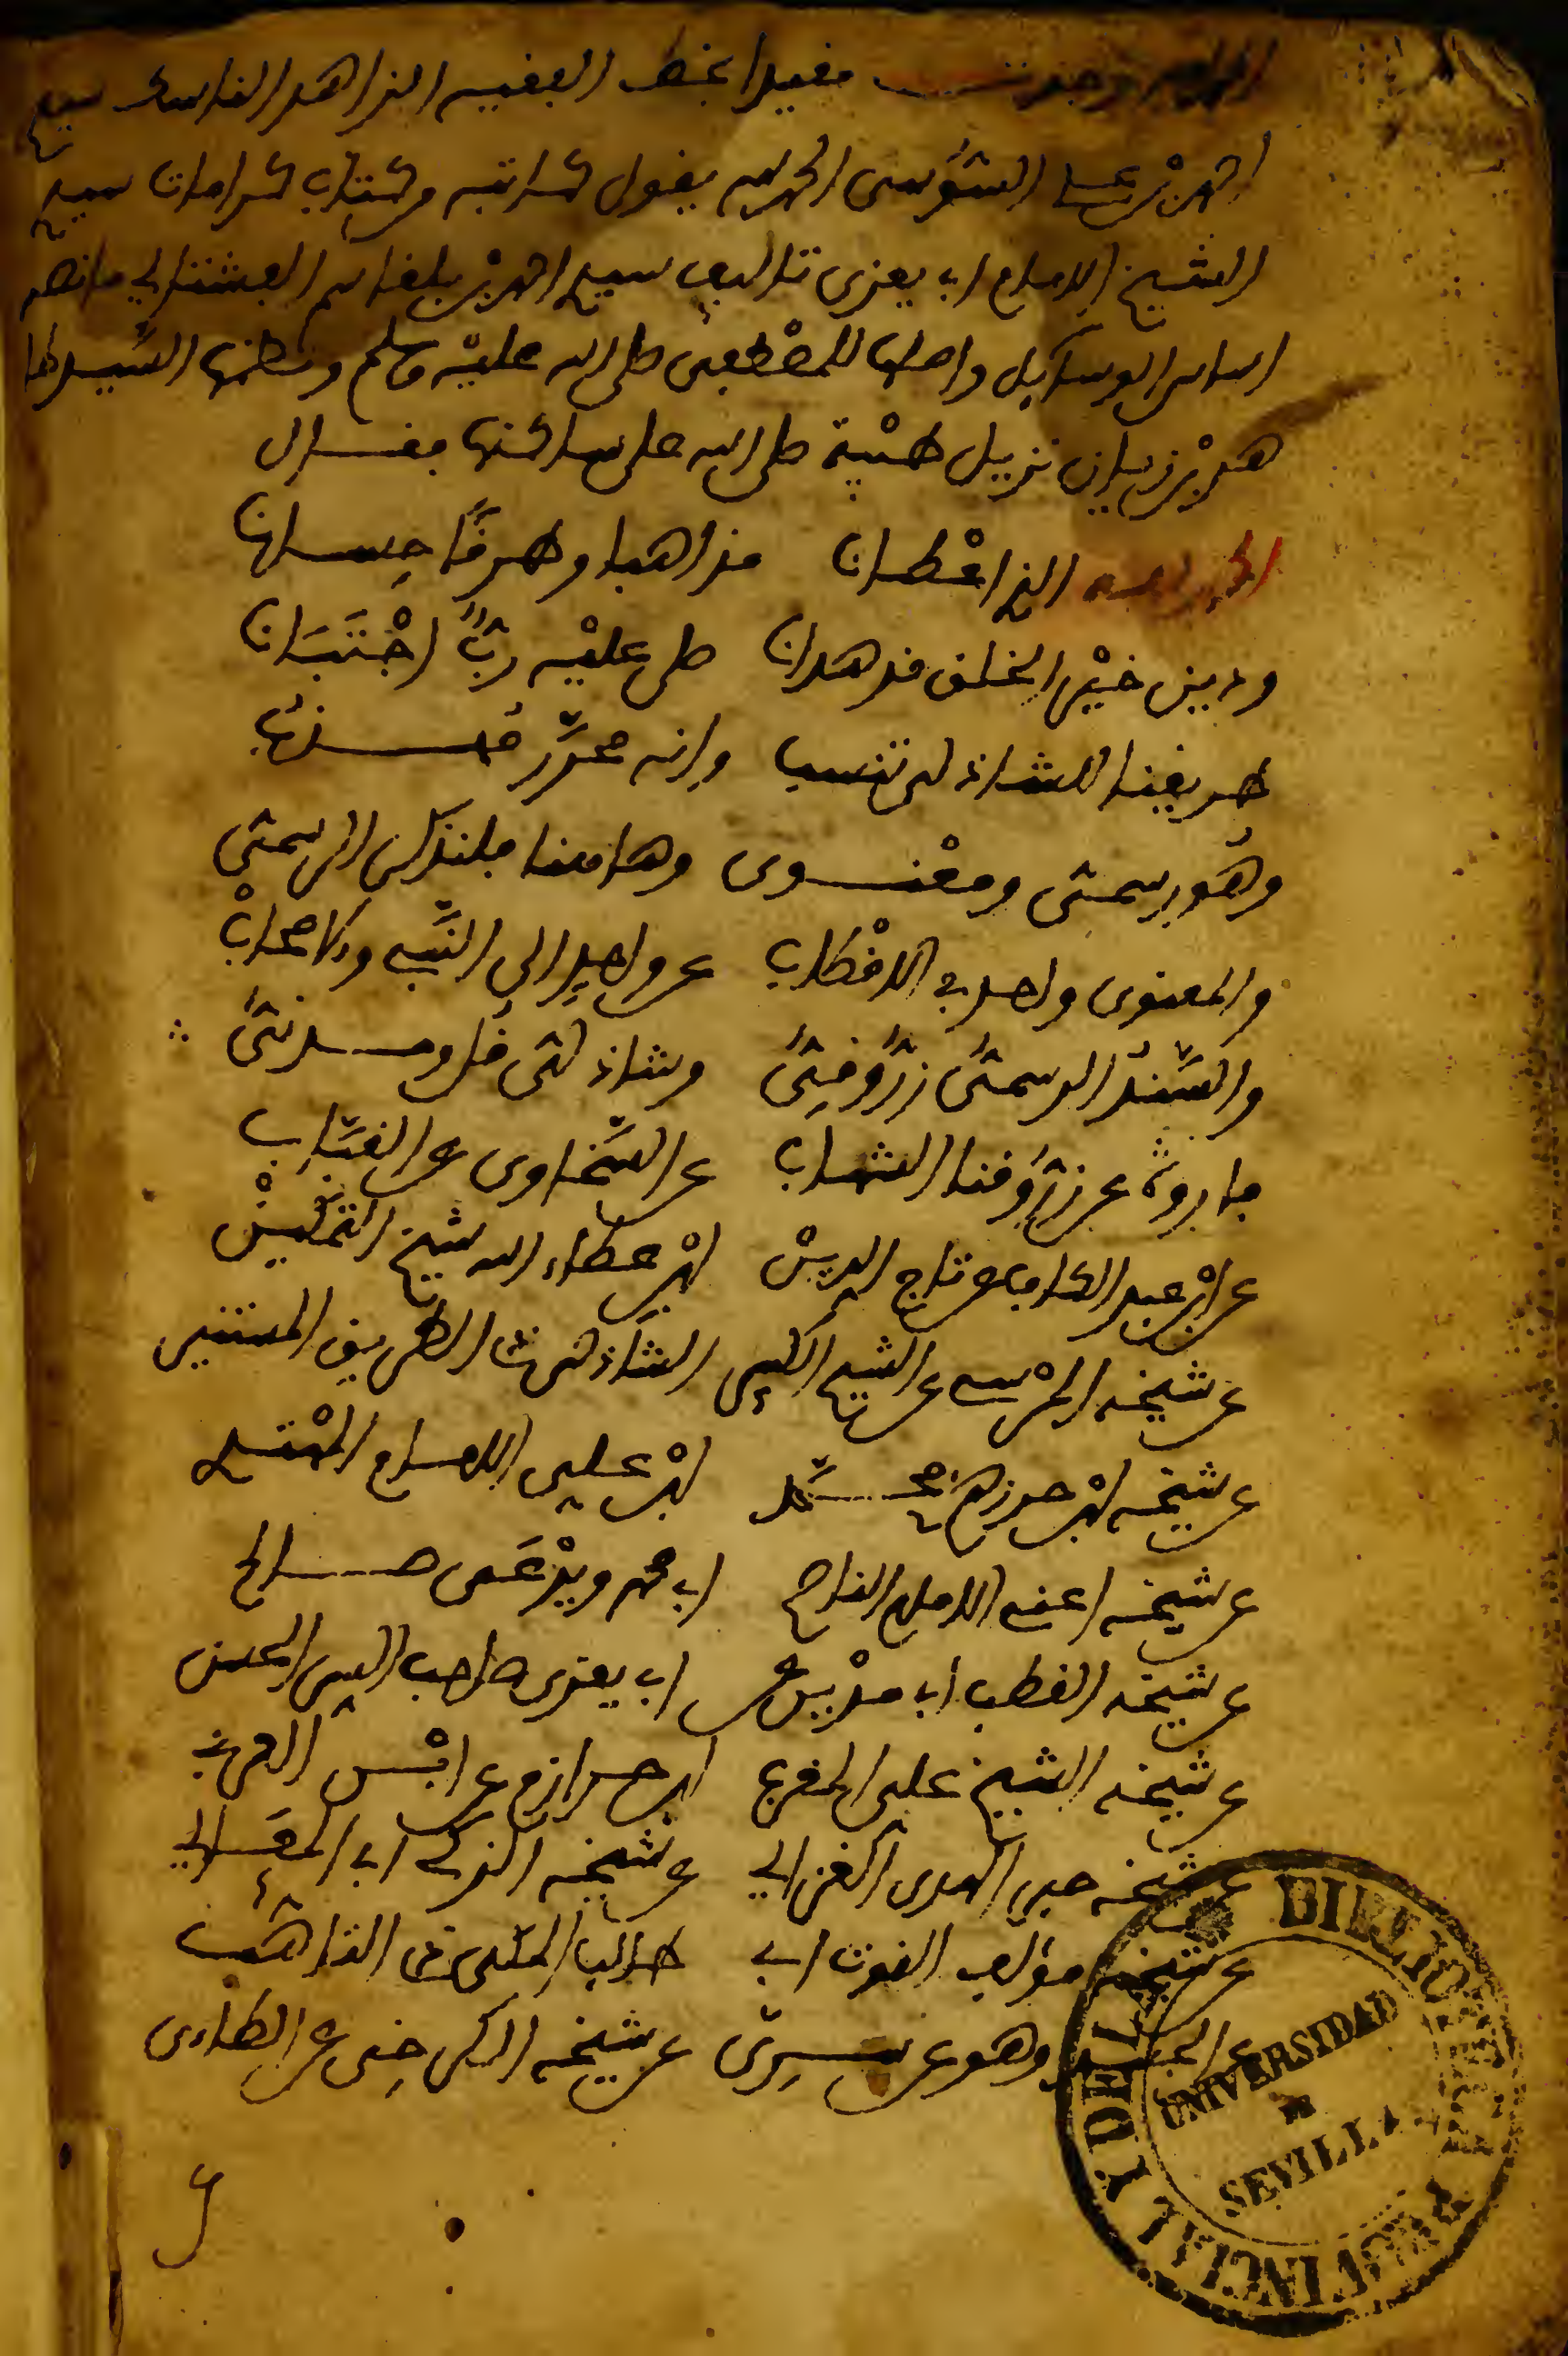 الحمد لله وجدت مقيدا بخط الفقيه الزاهد الناسك سيدي
احمد بن علي السوسي الحمد لله يقول كاتبه من كتاب كرامات سيدي
الشيخ الامام ابي يعزى تاليف سيدي احمد بن بلقاسم الصومعي ما نصه
اساس الوسائل واصلها للمصطفى صلى الله عليه وسلم ونظمها السيد
محمد بن زيان نزيل طيبة صلى الله على ساكنها فقال
الحمد لله الذي اعطانا مذاهبا وطرقًا حسانا
ودين خير الخلق قد هدانا صلى عليه ربنا اجتبانا
طريقنا للشاذلي تنسب وانه محرَّر
وهو رسمي ومعنوي وهاهنا فلنذكر الرسمي
والمعنوي واحد في الاقطاب عن واحد الى النبي والاصحاب
والسَّند الرسمي زرُّوقيُّ وشاذلي قل ومدنيُّ
فاروه عن زرُّوقنا الشهاب عن السَّخاوي عن القباب
عن ابن عبد الكافي عن تاج الدين ابن عطاء الله شيخ التمكين
عن شيخه المرسي عن الشيخ الكبير الشاذلي ذي الطريق المستنير
عن شيخه ابن حرزهم محمَّد ابن علي الامام المهتدي
عن شيخه اعني الامام الناصح ابي محمد ويدعى صالح
عن شيخه القطب ابي مدين عن ابي يعزى صاحب السر الحسن
عن شيخه الشيخ علي المغربي ابن حرازم عن ابن العربي
عن شيخه حبر الهدى الغزالي عن شيخه الزكي ابي المعالي
عن شيخه مؤلف القوت ابي طالب المكي ذي المذاهب
عن الجنيد وهو عن سري عن شيخه الكرخي عن الطاءي
BIBLIOTECA
UNIVERSIDAD
DE
SEVILLA
Y PROVINCIAL